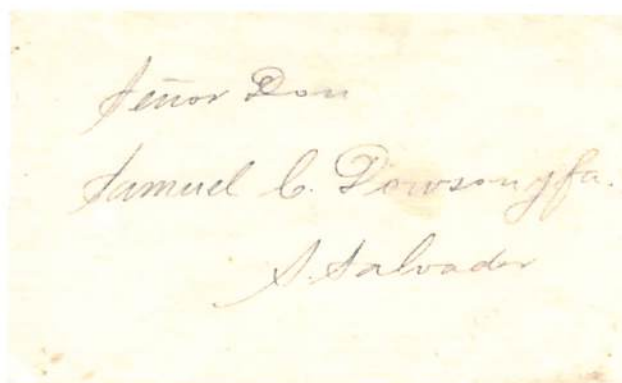 Señor Don
Samuel C. Dowson y fa.
S. Salvador